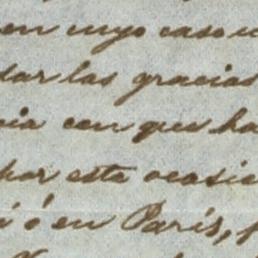 en cuyo caso
dar las gracias
cia con que ha
por esta ocasio
á ó en París,